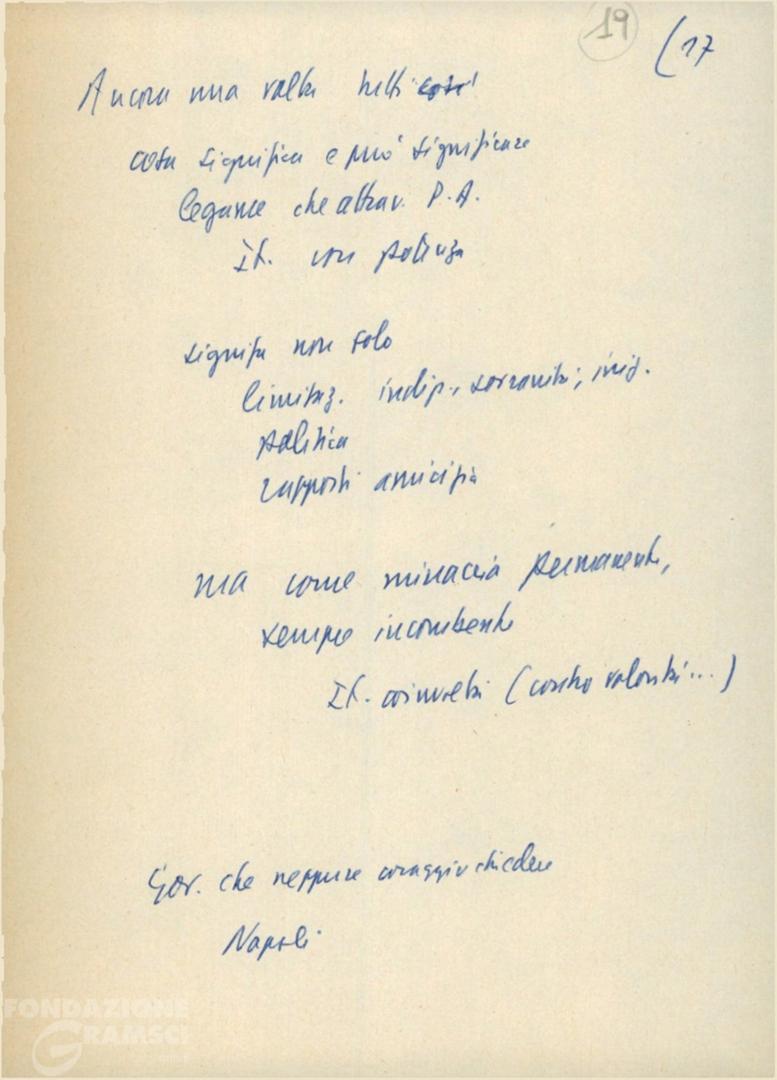 19 (17
Ancora una volta tutti così
cosa significa e può significare
legame che attrav. P.A.
It. con potenza
signifa non solo
limitaz. indip., sovranità, iniz.
politica
rapporti amicizia
ma come minaccia permanente,
sempre incombente
It. coinvolta (contro volontà...)
Gov. che neppure coraggio chiedere
Napoli
FONDAZIONE
GRAMSCI